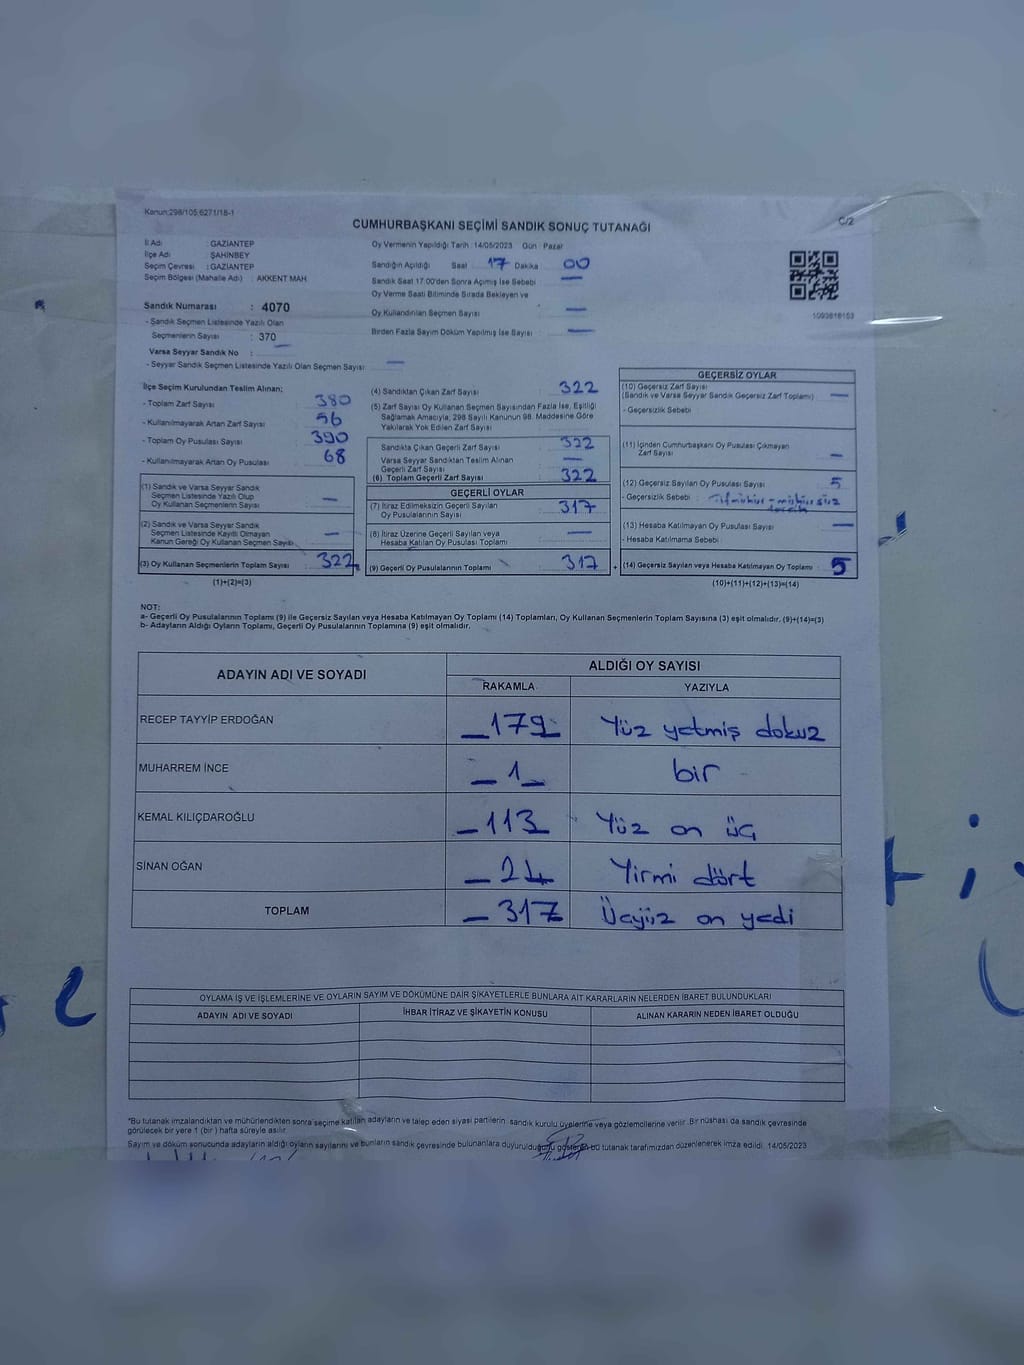 Kanun:298/105;6271/18-1
C/2
CUMHURBAŞKANI SEÇİMİ SANDIK SONUÇ TUTANAĞI
İl Adı : GAZİANTEP
İlçe Adı : ŞAHİNBEY
Seçim Çevresi : GAZİANTEP
Seçim Bölgesi (Mahalle Adı) : AKKENT MAH.
Sandık Numarası : 4070
- Sandık Seçmen Listesinde Yazılı Olan
Seçmenlerin Sayısı : 370
Varsa Seyyar Sandık No : —
- Seyyar Sandık Seçmen Listesinde Yazılı Olan Seçmen Sayısı —
Oy Vermenin Yapıldığı Tarih : 14/05/2023 Gün : Pazar
Sandığın Açıldığı Saat 17 Dakika 00
Sandık Saat 17.00'den Sonra Açılmış İse Sebebi —
Oy Verme Saati Bitiminde Sırada Bekleyen ve
Oy Kullandırılan Seçmen Sayısı —
Birden Fazla Sayım Döküm Yapılmış İse Sayısı —
1093818153
İlçe Seçim Kurulundan Teslim Alınan;
- Toplam Zarf Sayısı 380
- Kullanılmayarak Artan Zarf Sayısı 56
- Toplam Oy Pusulası Sayısı 390
- Kullanılmayarak Artan Oy Pusulası 68
(1) Sandık ve Varsa Seyyar Sandık
Seçmen Listesinde Yazılı Olup
Oy Kullanan Seçmenlerin Sayısı —
(2) Sandık ve Varsa Seyyar Sandık
Seçmen Listesinde Kayıtlı Olmayan
Kanun Gereği Oy Kullanan Seçmen Sayısı —
(3) Oy Kullanan Seçmenlerin Toplam Sayısı 322
(1)+(2)=(3)
(4) Sandıktan Çıkan Zarf Sayısı 322
(5) Zarf Sayısı Oy Kullanan Seçmen Sayısından Fazla İse, Eşitliği
Sağlamak Amacıyla, 298 Sayılı Kanunun 98. Maddesine Göre
Yakılarak Yok Edilen Zarf Sayısı
Sandıkta Çıkan Geçerli Zarf Sayısı 322
Varsa Seyyar Sandıktan Teslim Alınan
Geçerli Zarf Sayısı —
(6) Toplam Geçerli Zarf Sayısı 322
GEÇERLİ OYLAR
(7) İtiraz Edilmeksizin Geçerli Sayılan
Oy Pusulalarının Sayısı 317
(8) İtiraz Üzerine Geçerli Sayılan veya
Hesaba Katılan Oy Pusulası Toplamı —
(9) Geçerli Oy Pusulalarının Toplamı 317
+
GEÇERSİZ OYLAR
(10) Geçersiz Zarf Sayısı
(Sandık ve Varsa Seyyar Sandık Geçersiz Zarf Toplamı) —
- Geçersizlik Sebebi
(11) İçinden Cumhurbaşkanı Oy Pusulası Çıkmayan
Zarf Sayısı —
(12) Geçersiz Sayılan Oy Pusulası Sayısı 5
- Geçersizlik Sebebi :
(13) Hesaba Katılmayan Oy Pusulası Sayısı —
- Hesaba Katılmama Sebebi
(14) Geçersiz Sayılan veya Hesaba Katılmayan Oy Toplamı 5
(10)+(11)+(12)+(13)=(14)
NOT:
a- Geçerli Oy Pusulalarının Toplamı (9) ile Geçersiz Sayılan veya Hesaba Katılmayan Oy Toplamı (14) Toplamları, Oy Kullanan Seçmenlerin Toplam Sayısına (3) eşit olmalıdır. (9)+(14)=(3)
b- Adayların Aldığı Oyların Toplamı, Geçerli Oy Pusulalarının Toplamına (9) eşit olmalıdır.
ADAYIN ADI VE SOYADI
ALDIĞI OY SAYISI
RAKAMLA YAZIYLA
RECEP TAYYİP ERDOĞAN — 179 — Yüz yetmiş dokuz
MUHARREM İNCE — 1 — bir
KEMAL KILIÇDAROĞLU — 113 — Yüz on üç
SİNAN OĞAN — 24 — Yirmi dört
TOPLAM — 317 Üçyüz on yedi
OYLAMA İŞ VE İŞLEMLERİNE VE OYLARIN SAYIM VE DÖKÜMÜNE DAİR ŞİKAYETLERLE BUNLARA AİT KARARLARIN NELERDEN İBARET BULUNDUKLARI
ADAYIN ADI VE SOYADI İHBAR İTİRAZ VE ŞİKAYETİN KONUSU ALINAN KARARIN NEDEN İBARET OLDUĞU
*Bu tutanak imzalandıktan ve mühürlendikten sonra seçime katılan adayların ve talep eden siyasi partilerin sandık kurulu üyelerine veya gözlemcilerine verilir. Bir nüshası da sandık çevresinde
görülecek bir yere 1 (bir) hafta süreyle asılır.
Sayım ve döküm sonucunda adayların aldığı oyların sayılarını ve bunların sandık çevresinde bulunanlara duyurulduğunu gösteren bu tutanak tarafımızdan düzenlenerek imza edildi. 14/05/2023